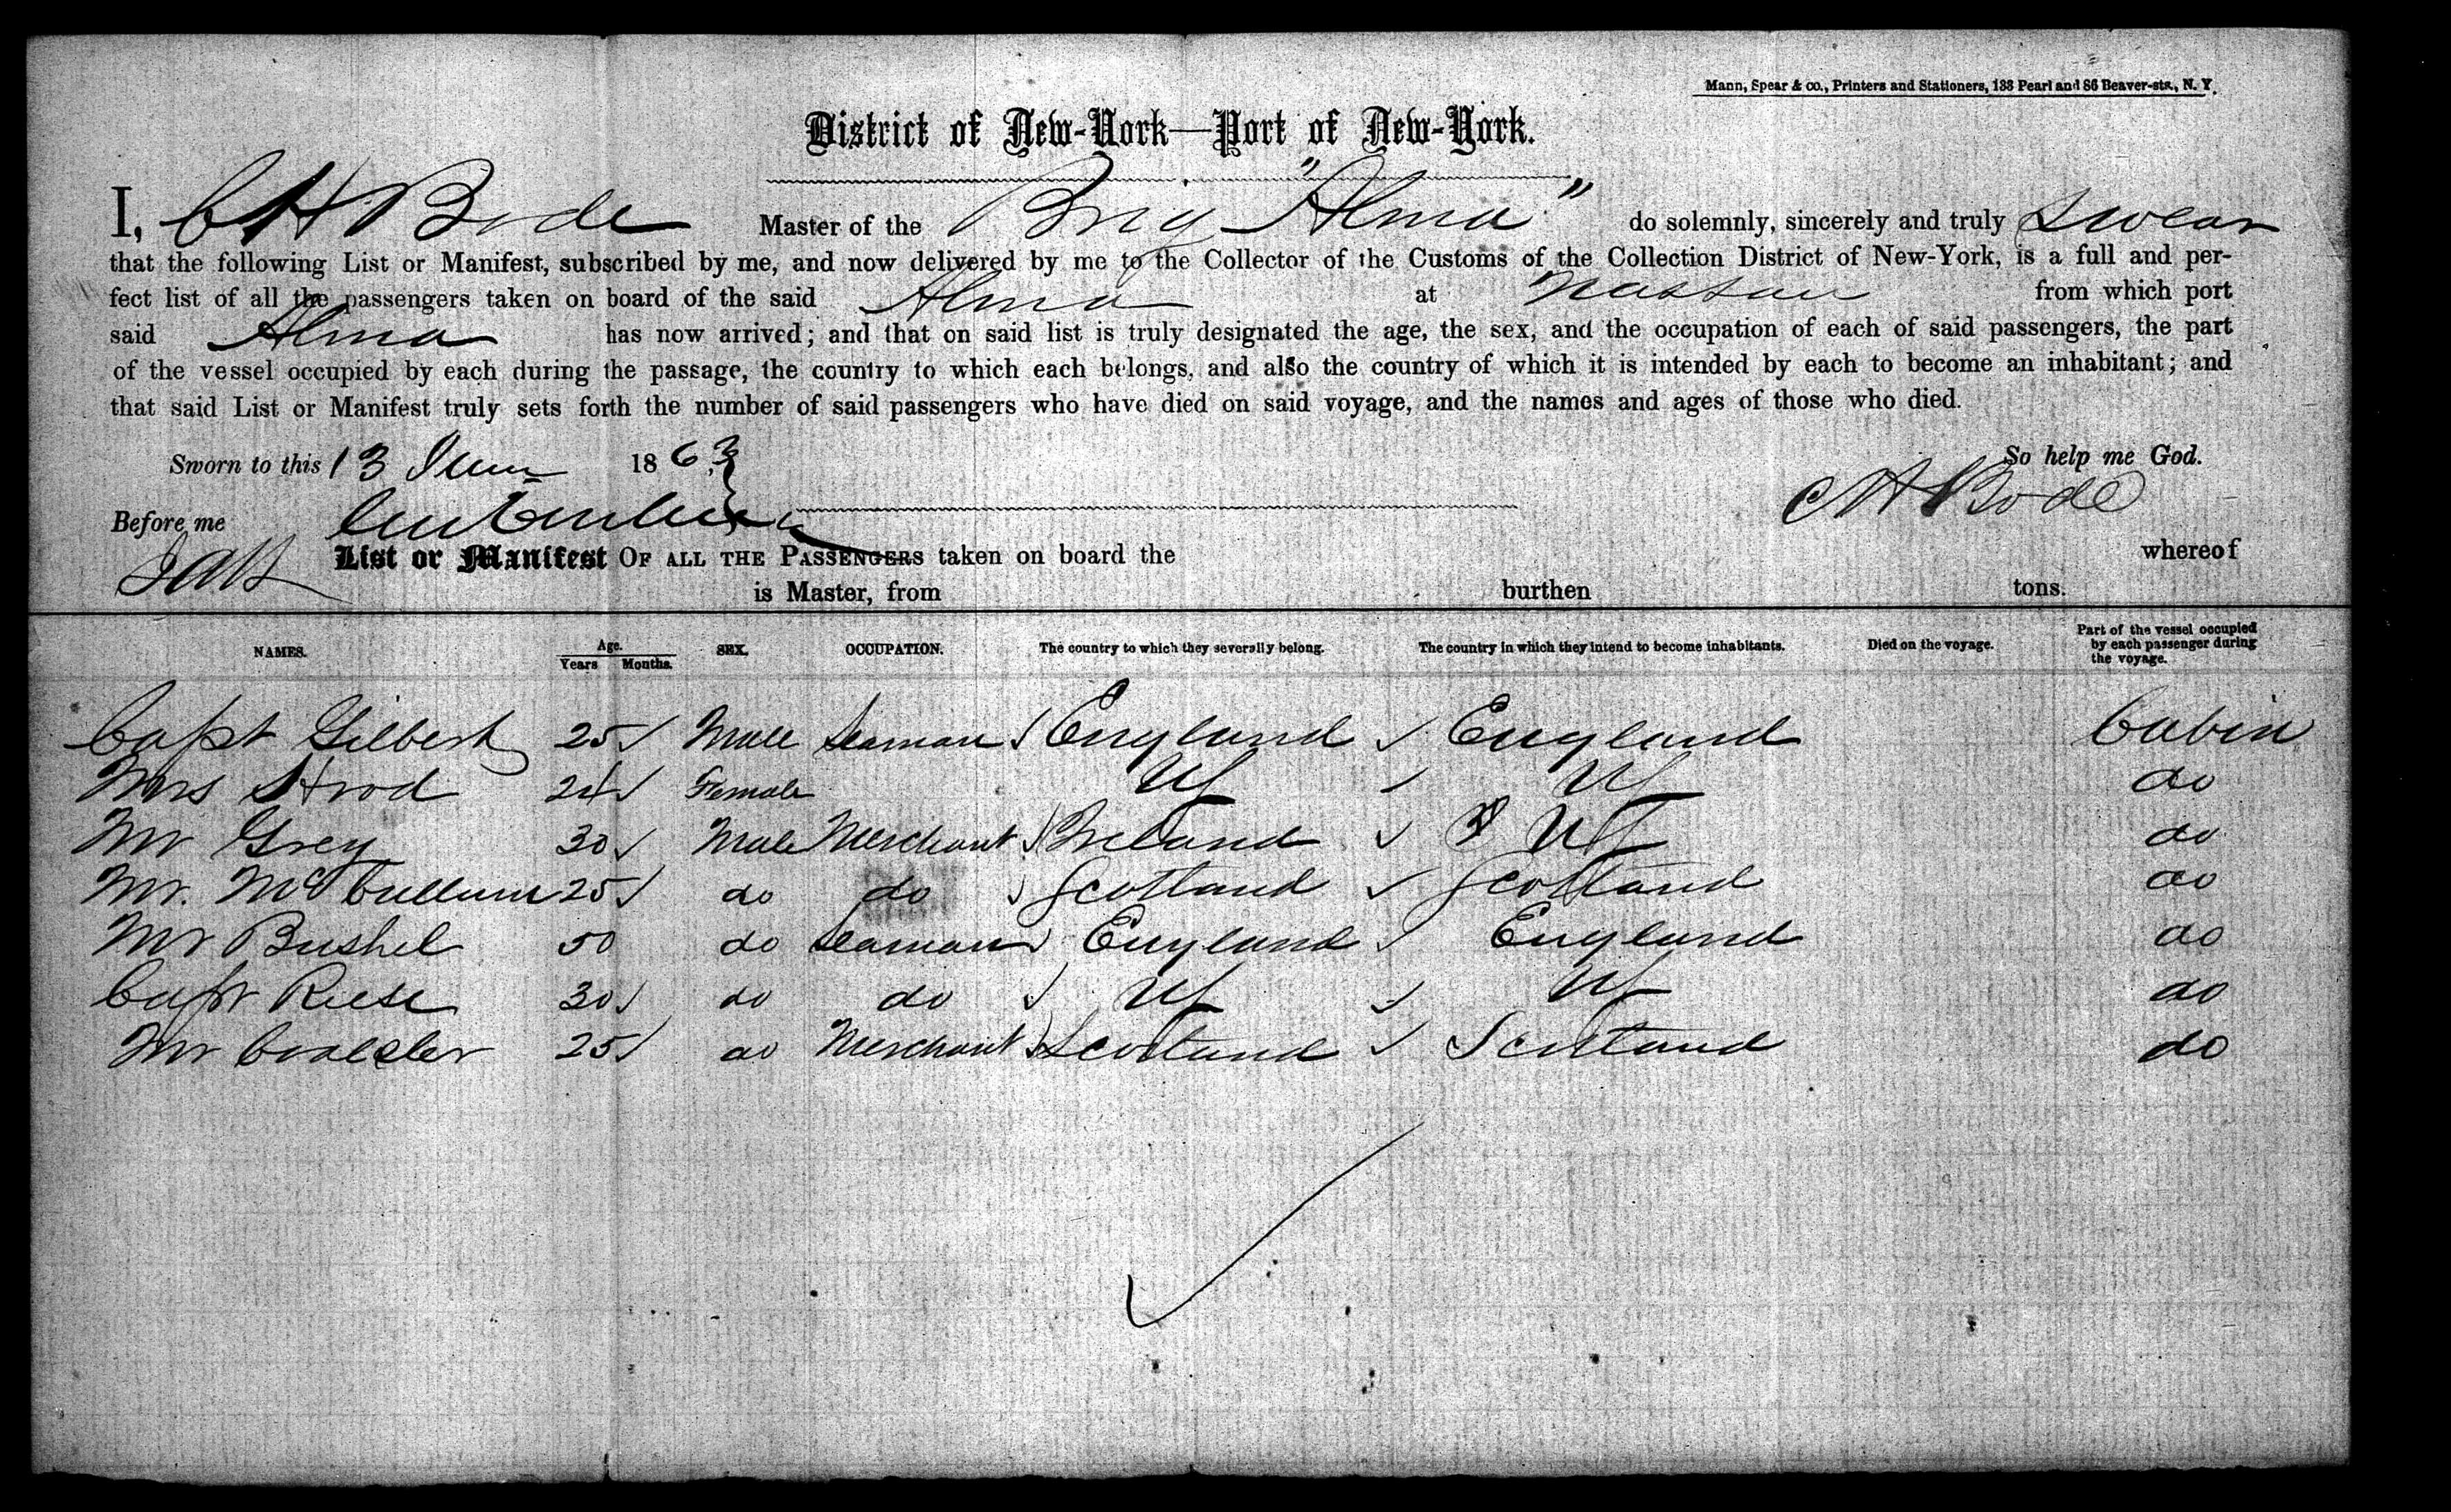 Mann, Spear & co., Printers and Stationers, 133 Pearl and 86 Beaver-sts., N. Y.
District of New-York—Port of New-York.
I, C H Bode Master of the Brig "Alma" do solemnly, sincerely and truly swear
that the following List or Manifest, subscribed by me, and now delivered by me to the Collector of the Customs of the Collection District of New-York, is a full and per-
fect list of all the passengers taken on board of the said Alma at Nassau from which port
said Alma has now arrived; and that on said list is truly designated the age, the sex, and the occupation of each of said passengers, the part
of the vessel occupied by each during the passage, the country to which each belongs, and also the country of which it is intended by each to become an inhabitant; and
that said List or Manifest truly sets forth the number of said passengers who have died on said voyage, and the names and ages of those who died.
Sworn to this 13 June 1863 So help me God.
Before me C H Bode
List or Manifest OF ALL THE PASSENGERS taken on board the whereof
is Master, from burthen tons.
NAMES. Age. Years Months. SEX. OCCUPATION. The country to which they severally belong. The country in which they intend to become inhabitants. Died on the voyage. Part of the vessel occupied by each passenger during the voyage.
Capt Gilbert 25 Male Seaman England England Cabin
Mrs Strod 24 Female US US do
Mr Grey 30 Male Merchant Ireland US do
Mr. McCullum 25 do do Scotland Scotland do
Mr Bushel 50 do Seaman England England do
Capt Riese 30 do do US US do
Mr 25 do Merchant Scotland Scotland do